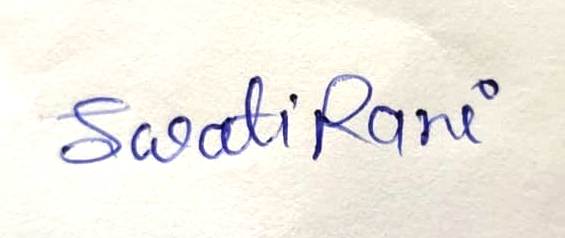 Swati Rani